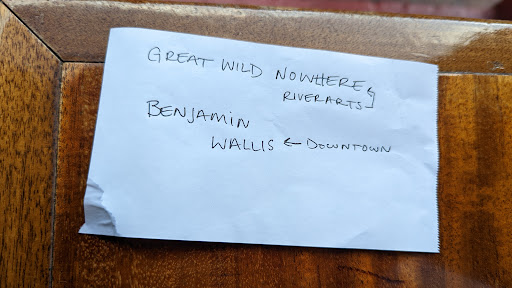 GREAT WILD NOWHERE
RIVERARTS
BENJAMIN
WALLIS ← DOWNTOWN